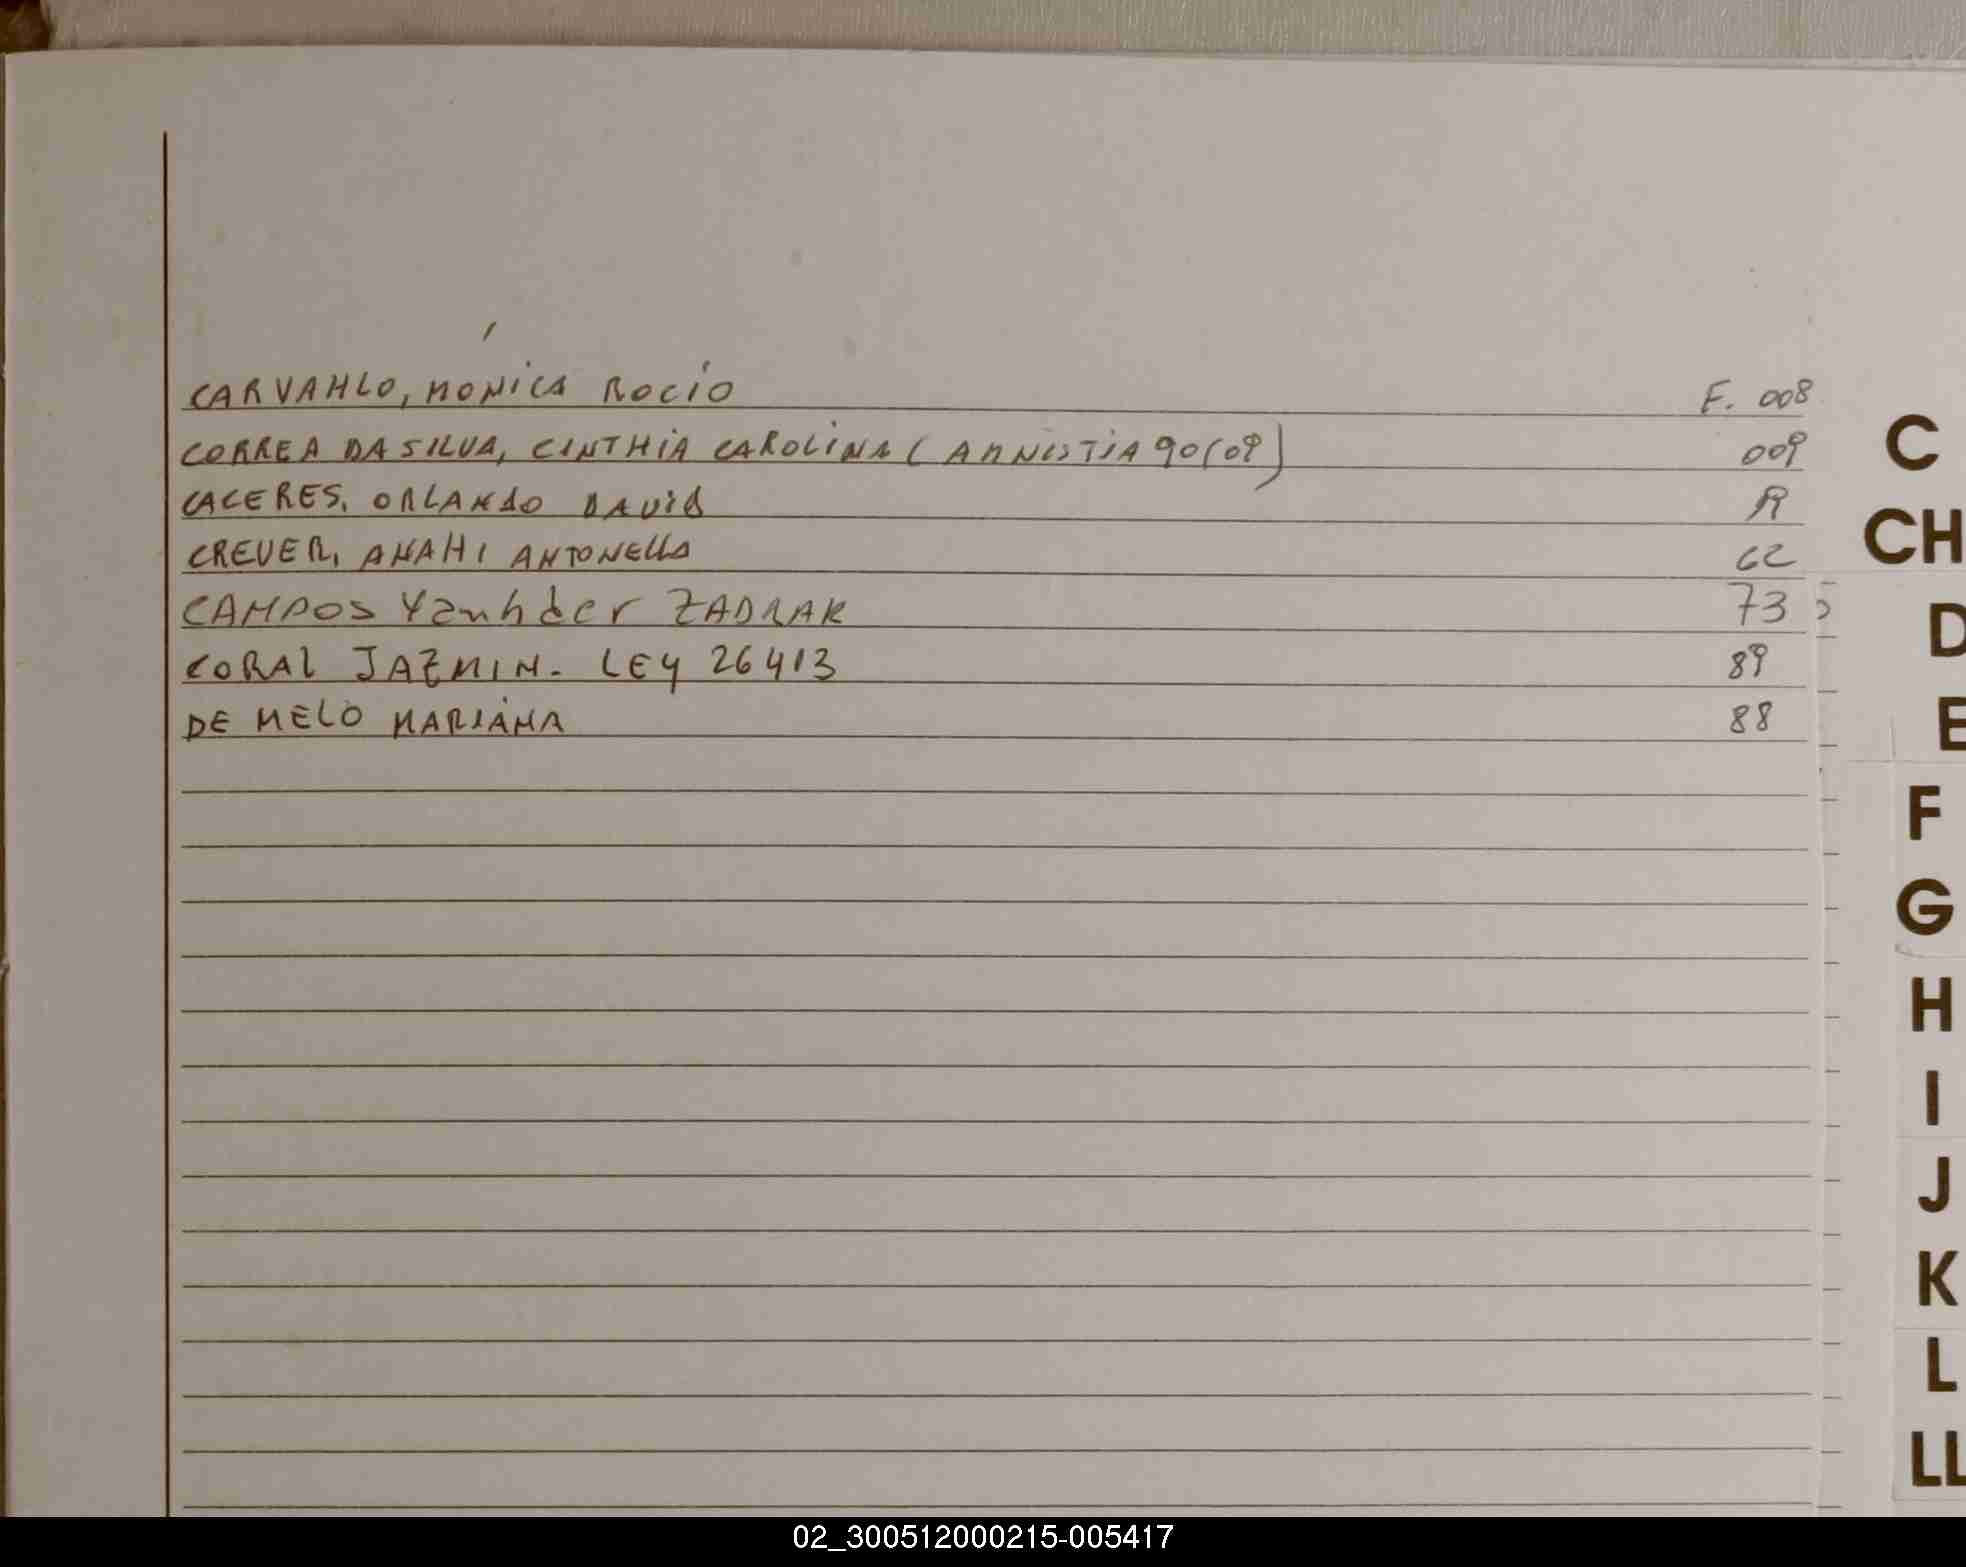 CARVAHLO, MÓNICA ROCIO F. 008
CORREA DA SILVA, CINTHIA CAROLINA (AMNISTIA 90/09) 009
CACERES, ORLANDO DAVID R
CREVER, ANAHI ANTONELLA 62
CAMPOS Yanhder ZADRAK 73
CORAL JAZMIN. LEY 26413 89
DE MELO MARIANA 88
C
CH
D
E
F
G
H
I
J
K
L
LL
02_300512000215-005417